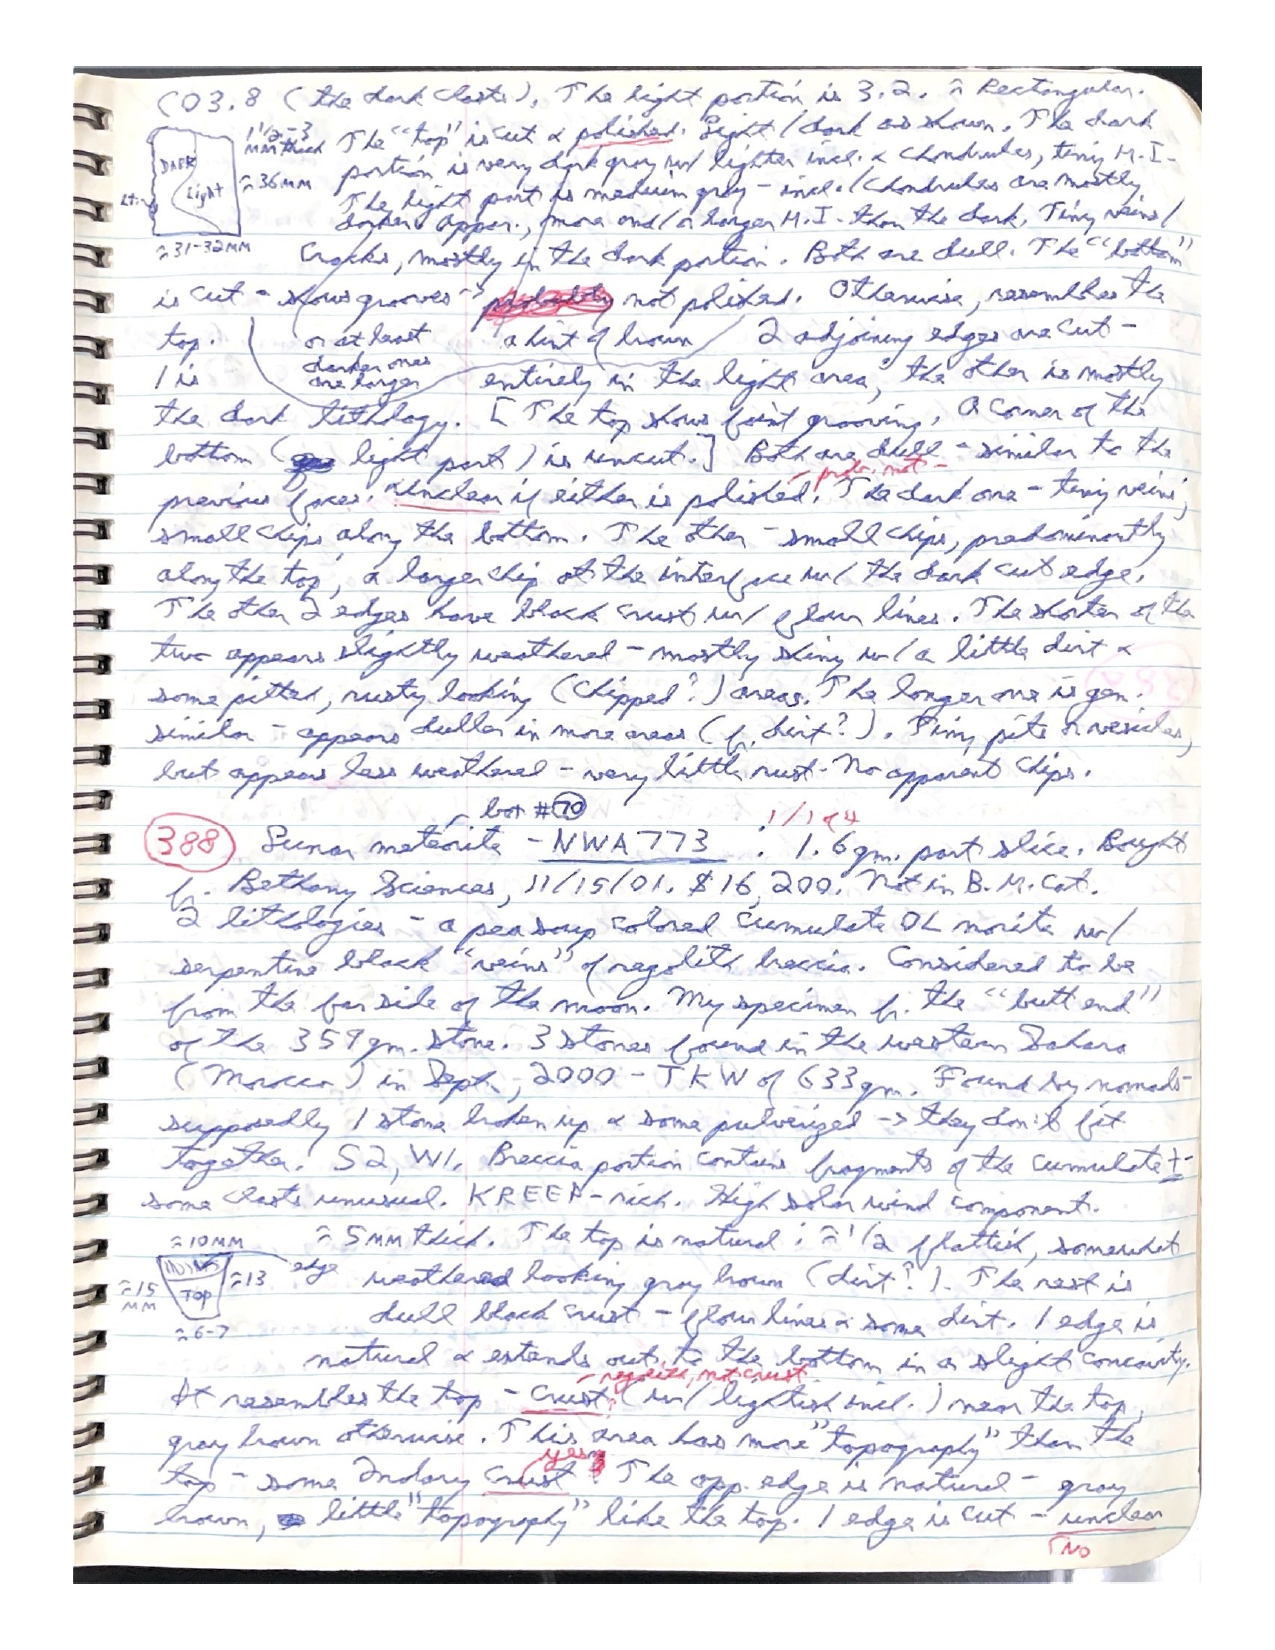 CO3.8 (the dark clasts). The light portion is 3.2. ≈ Rectangular.
1 1/2-3 MM thick
The "top" is cut & polished. Light/dark as shown. The dark
DARK
Light
≈36MM
≈31-32MM
portion is very dark gray w/ lighter incl. & chondrules, tiny M.I-
The light part is medium gray - incl./chondrules are mostly
darker appar., more and/or larger M.I. than the dark. Tiny veins/
cracks, mostly in the dark portion. Both are dull. The "bottom"
is cut - shows grooves - probably not polished. Otherwise, resembles the
top. or at least darker ones are larger a hint of brown 2 adjoining edges are cut -
1 is entirely in the light area, the other is mostly
the dark lithology. [The top shows faint grooving. A corner of the
bottom ( light part) is uncut.] Both are dull - similar to the
- prob. not -
previous faces. Unclear if either is polished. The dark one - tiny veins,
small chips along the bottom. The other - small chips, predominantly
along the top, a larger chip at the interface w/ the dark cut edge.
The other 2 edges have black crust w/ flow lines. The shorter of the
two appears slightly weathered - mostly shiny w/ a little dirt &
some pitted, rusty looking (chipped?) areas. The longer one is gen.
similar - appears duller in more areas (fr. dirt?). Tiny pits or vesicles,
but appears less weathered - very little rust - No apparent chips.
lot #70
1/1 of 4
388 Lunar meteorite - NWA 773 : 1.6gm. part slice. Bought
fr. Bethany Sciences, 11/15/01. $16,200. Not in B.M. Cat.
2 lithologies - a pea soup colored cumulate OL norite w/
serpentine black "veins" of regolith breccia. Considered to be
from the far side of the moon. My specimen fr. the "butt end"
of the 359gm. stone. 3 stones found in the western Sahara
(Morocco) in Sept., 2000 - TKW of 633gm. Found by nomads-
supposedly 1 stone broken up & some pulverized -> they don't fit
together. S2, W1. Breccia portion contains fragments of the cumulate +-
some clasts unusual. KREEP-rich. High solar wind component.
≈10MM
≈5MM thick. The top is natural: ≈1/2 flattish, somewhat
≈15 MM
TOP
≈13
edge
≈6-7
weathered looking gray brown (dirt?). The rest is
dull black crust - flow lines & some dirt. 1 edge is
natural & extends out to the bottom in a slight concavity.
- regolith, not crust
It resembles the top - crust? (w/ lightish incl.) near the top,
gray brown otherwise. This area has more "topography" than the
yes
top - some 2ndary crust? The opp. edge is natural - gray
brown, little "topography" like the top. 1 edge is cut - unclear
NO